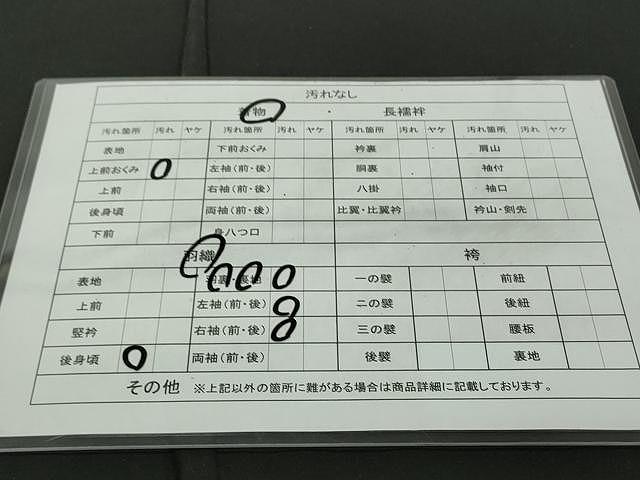 汚れなし
着物 ・ 長襦袢
汚れ箇所 汚れ ヤケ 汚れ箇所 汚れ ヤケ 汚れ箇所 汚れ ヤケ 汚れ箇所 汚れ ヤケ
表地 下前おくみ 衿裏 肩山
上前おくみ 左袖(前・後) 胴裏 袖付
上前 右袖(前・後) 八掛 袖口
後身頃 両袖(前・後) 比翼・比翼衿 衿山・剣先
下前 身八つ口
羽織 袴
表地 胴裏・裏地 一の襞 前紐
上前 左袖(前・後) 二の襞 後紐
竪衿 右袖(前・後) 三の襞 腰板
後身頃 両袖(前・後) 後襞 裏地
その他 ※上記以外の箇所に難がある場合は商品詳細に記載しております。